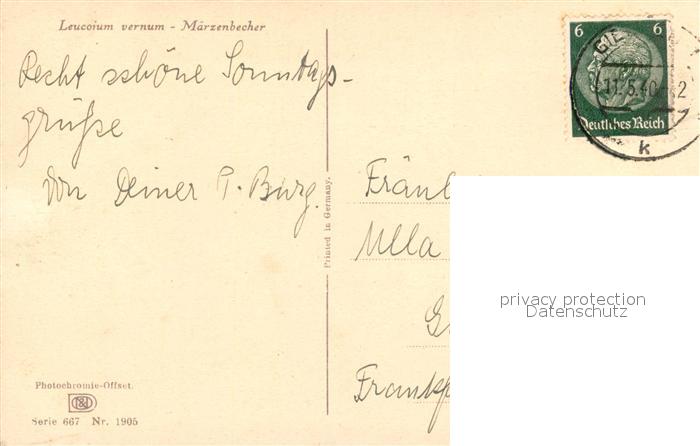 Leucoium vernum - Märzenbecher
Recht schöne Sonntags-
grüße
von Deiner T. Burg.
Printed in Germany.
6 6
Deutsches Reich
GIE
11.5.40-
2
k
Fräul
Ulla
G
Frankf
privacy protection
Datenschutz
Photochromie-Offset.
Serie 667 Nr. 1905